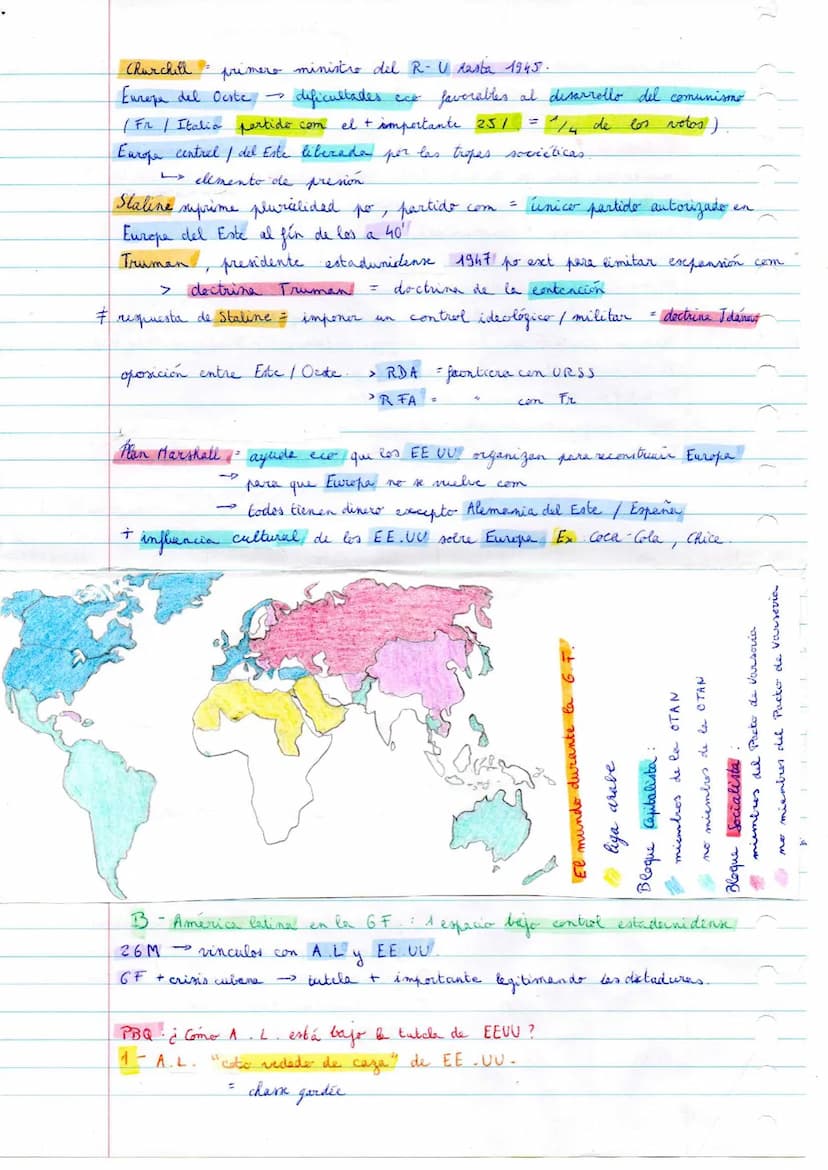 Churchill = primero ministro del R-U hasta 1945.
Europa del Oeste → dificultades eco favorables al desarrollo del comunismo
(Fr / Italia partido com el + importante 25% = 1/4 de los votos)
Europa central / del Este liberada por las tropas soviéticas.
↳ elemento de presión
Staline suprime pluralidad po, partido com = único partido autorizado en
Europa del Este al fín de los a 40'
Truman, presidente estadunidense 1947 po ext para limitar expansión com
> doctrina Truman = doctrina de la contención
≠ respuesta de Staline = imponer un control ideológico / militar = doctrina Jdánov
oposición entre Este / Oeste. > RDA = frontiera con URSS
> RFA = " con Fr
Plan Marshall = ayuda eco que los EE UU organizan para reconstruir Europa
→ para que Europa no se vuelve com
→ todos tienen dinero excepto Alemania del Este / España
+ influencia cultural de los EE.UU sobre Europa. Ex : Coca-Cola, Chice.
El mundo durante la G.F.
liga arabe
Bloque Capitalista :
miembros de la OTAN
no miembros de la OTAN
Bloque Socialista :
miembres del Pacto de Varsovia
no miembres del Pacto de Varsovia
B - América latina en la GF. : 1 espacio bajo control estadounidense
26M → vinculos con A.L y EE.UU.
GF + crisis cubana → tutela + importante legitimando las dictaduras.
PBQ : ¿Cómo A.L. está bajo la tutela de EEUU ?
1 - A.L. "coto vedado de caza" de EE.UU.
= chasse gardée